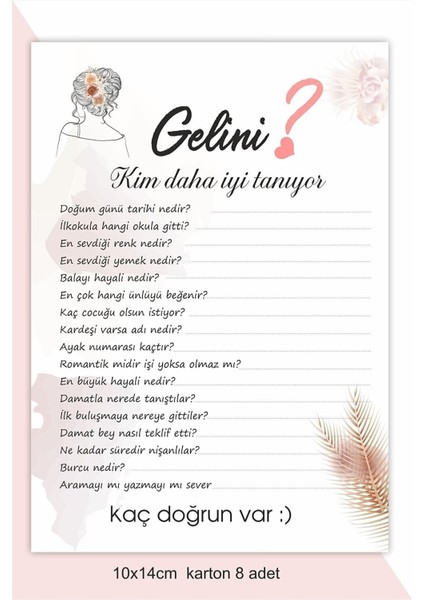 Gelini ?
Kim daha iyi tanıyor
Doğum günü tarihi nedir?
İlkokula hangi okula gitti?
En sevdiği renk nedir?
En sevdiği yemek nedir?
Balayı hayali nedir?
En çok hangi ünlüyü beğenir?
Kaç çocuğu olsun istiyor?
Kardeşi varsa adı nedir?
Ayak numarası kaçtır?
Romantik midir işi yoksa olmaz mı?
En büyük hayali nedir?
Damatla nerede tanıştılar?
İlk buluşmaya nereye gittiler?
Damat bey nasıl teklif etti?
Ne kadar süredir nişanlılar?
Burcu nedir?
Aramayı mı yazmayı mı sever
kaç doğrun var :)
10x14cm karton 8 adet